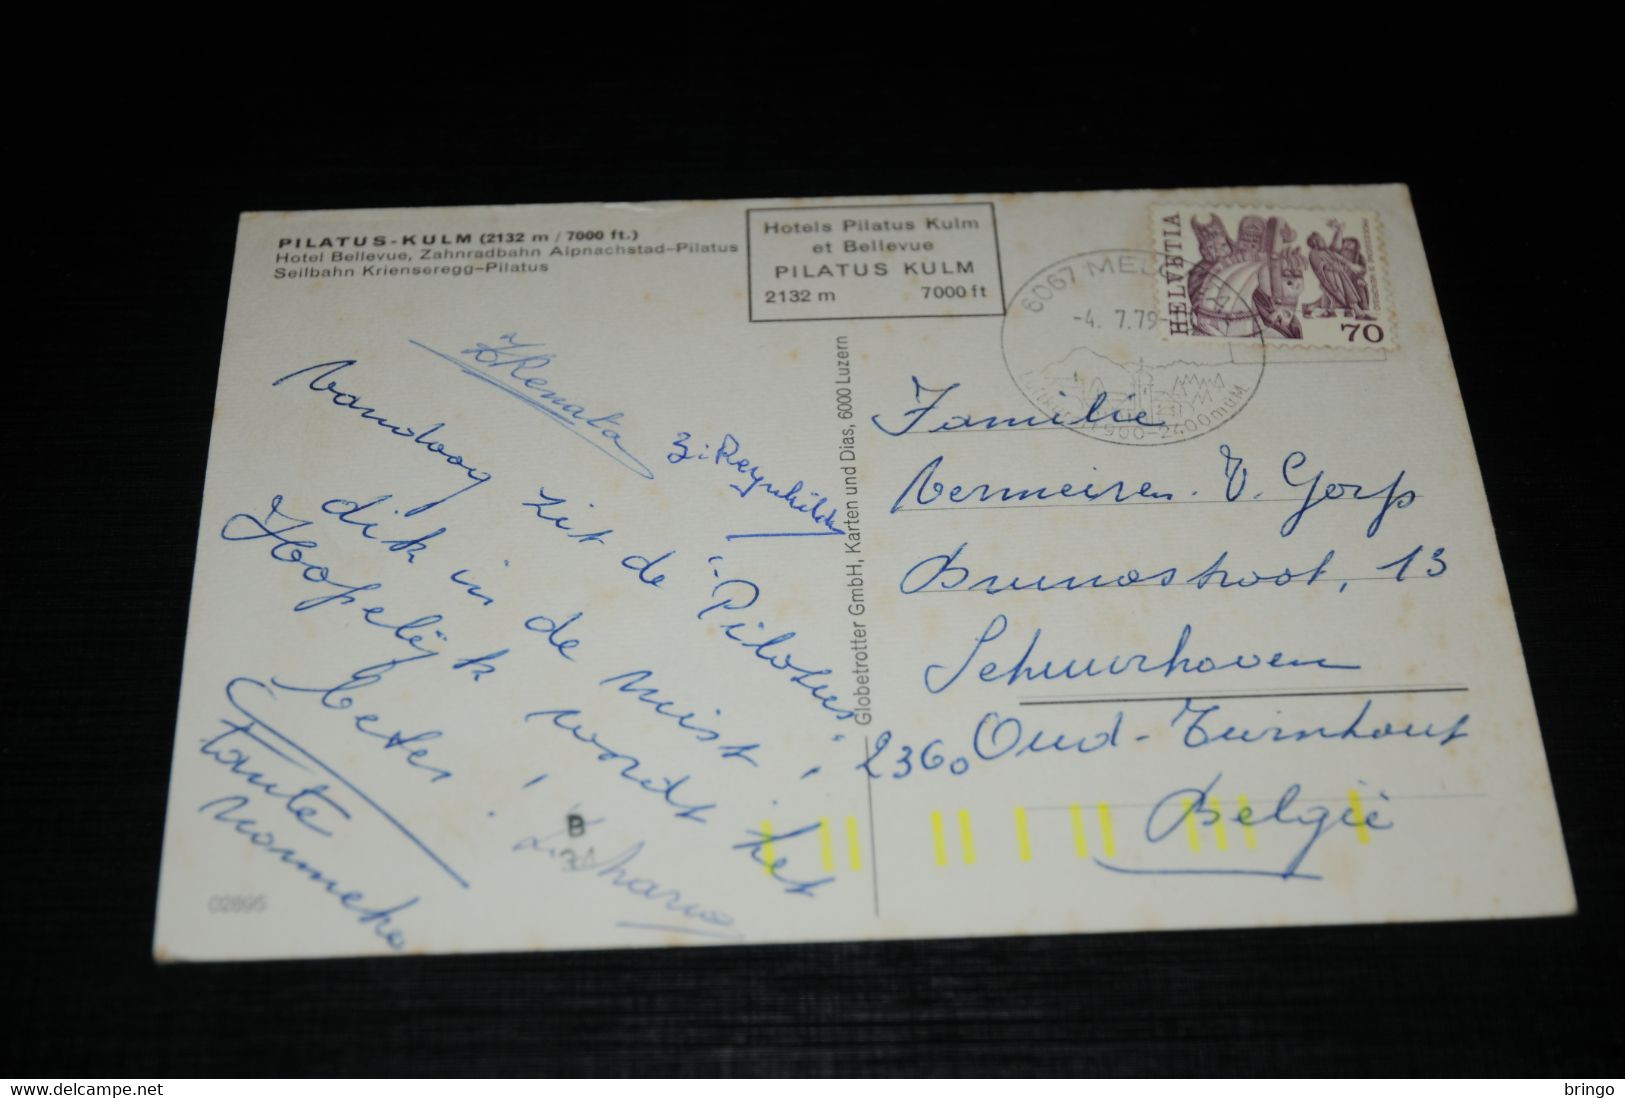 PILATUS-KULM (2132 m / 7000 ft.)
Hotel Bellevue, Zahnradbahn Alpnachstad-Pilatus
Seilbahn Krienseregg-Pilatus
Hotels Pilatus Kulm
et Bellevue
PILATUS KULM
2132 m 7000 ft
6067
-4. 7.79-
1900-2400müM
HELVETIA
70
Renata
Vandaag zit de Pilatus
dik in de mist!
Hopelijk wordt het
beter!
Tante
Zr
Globetrotter GmbH, Karten und Dias, 6000 Luzern
Familie
Vermeiren. V. Gorp
13
Schuurhoven
2360 Oud-Turnhout
België
B
02895
© bringo